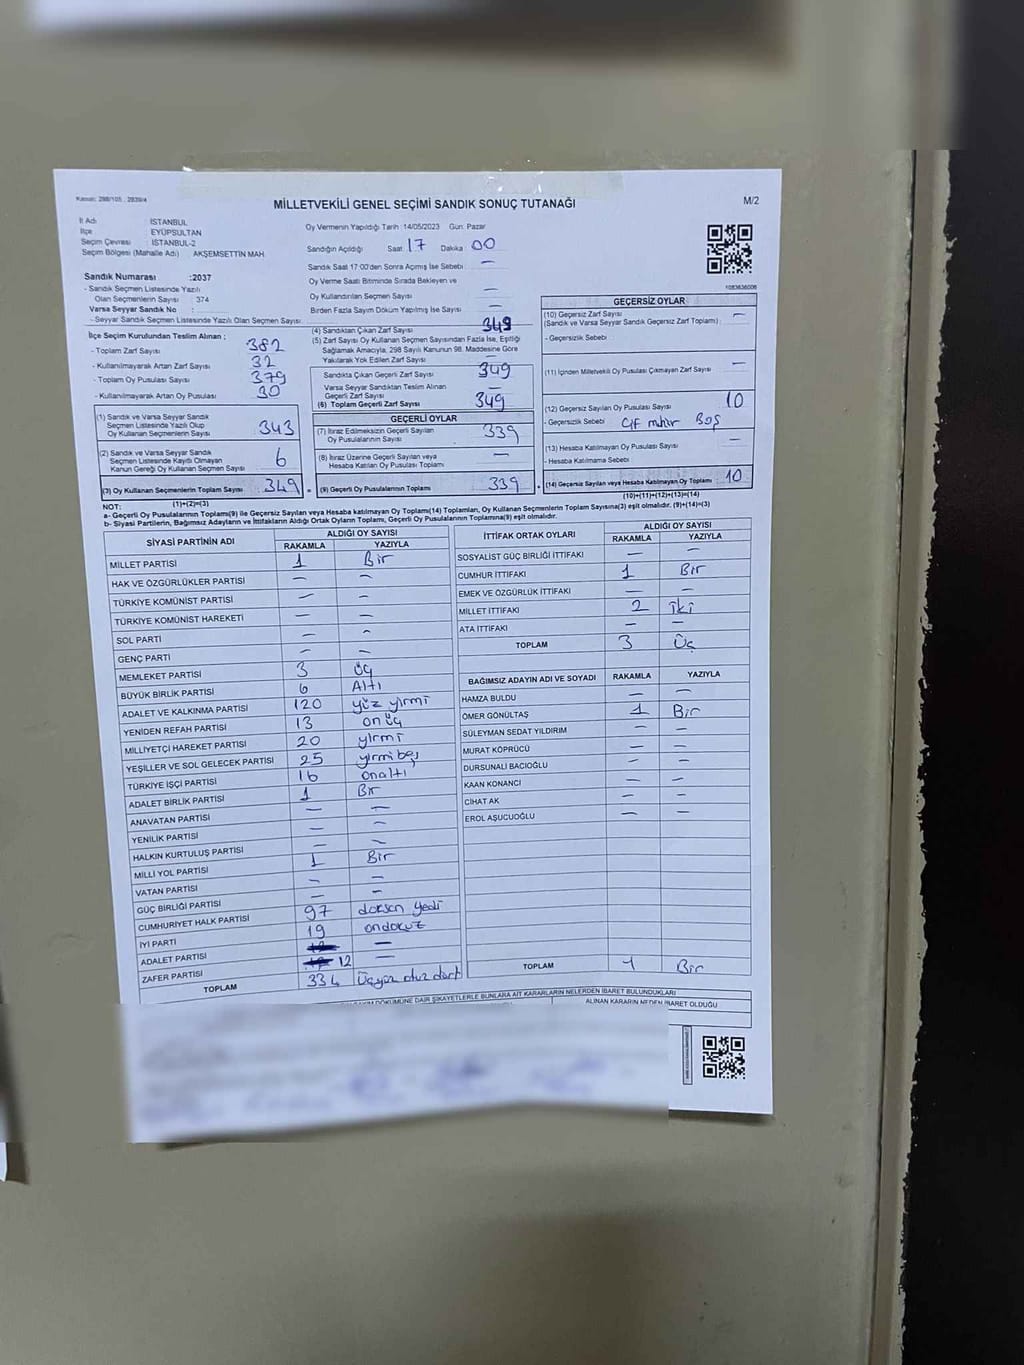 Kanun: 298/105 , 2839/4
MİLLETVEKİLİ GENEL SEÇİMİ SANDIK SONUÇ TUTANAĞI
M/2
İl Adı : İSTANBUL
İlçe : EYÜPSULTAN
Seçim Çevresi : İSTANBUL-2
Seçim Bölgesi (Mahalle Adı) : AKŞEMSETTİN MAH.
Sandık Numarası : 2037
- Sandık Seçmen Listesinde Yazılı
Olan Seçmenlerin Sayısı : 374
Varsa Seyyar Sandık No :
- Seyyar Sandık Seçmen Listesinde Yazılı Olan Seçmen Sayısı
Oy Vermenin Yapıldığı Tarih :14/05/2023 Gün: Pazar
Sandığın Açıldığı Saat 17 Dakika 00
Sandık Saat 17:00'den Sonra Açılmış İse Sebebi –
Oy Verme Saati Bitiminde Sırada Bekleyen ve
Oy Kullandırılan Seçmen Sayısı –
Birden Fazla Sayım Döküm Yapılmış İse Sayısı –
İlçe Seçim Kurulundan Teslim Alınan ;
- Toplam Zarf Sayısı 382
- Kullanılmayarak Artan Zarf Sayısı 32
- Toplam Oy Pusulası Sayısı 379
- Kullanılmayarak Artan Oy Pusulası 30
(1) Sandık ve Varsa Seyyar Sandık
Seçmen Listesinde Yazılı Olup
Oy Kullanan Seçmenlerin Sayısı 343
(2) Sandık ve Varsa Seyyar Sandık
Seçmen Listesinde Kayıtlı Olmayan
Kanun Gereği Oy Kullanan Seçmen Sayısı 6
(3) Oy Kullanan Seçmenlerin Toplam Sayısı 349
(1)+(2)=(3)
(4) Sandıktan Çıkan Zarf Sayısı 349
(5) Zarf Sayısı Oy Kullanan Seçmen Sayısından Fazla İse, Eşitliği
Sağlamak Amacıyla, 298 Sayılı Kanunun 98. Maddesine Göre
Yakılarak Yok Edilen Zarf Sayısı –
Sandıkta Çıkan Geçerli Zarf Sayısı 349
Varsa Seyyar Sandıktan Teslim Alınan
Geçerli Zarf Sayısı –
(6) Toplam Geçerli Zarf Sayısı 349
GEÇERLİ OYLAR
(7) İtiraz Edilmeksizin Geçerli Sayılan
Oy Pusulalarının Sayısı 339
(8) İtiraz Üzerine Geçerli Sayılan veya
Hesaba Katılan Oy Pusulası Toplamı –
= (9) Geçerli Oy Pusulalarının Toplamı 339
1083636006
GEÇERSİZ OYLAR
(10) Geçersiz Zarf Sayısı
(Sandık ve Varsa Seyyar Sandık Geçersiz Zarf Toplamı) –
- Geçersizlik Sebebi
(11) İçinden Milletvekili Oy Pusulası Çıkmayan Zarf Sayısı –
(12) Geçersiz Sayılan Oy Pusulası Sayısı 10
- Geçersizlik Sebebi Çift mühür Boş
(13) Hesaba Katılmayan Oy Pusulası Sayısı –
- Hesaba Katılmama Sebebi
(14) Geçersiz Sayılan veya Hesaba Katılmayan Oy Toplamı 10
(10)+(11)+(12)+(13)=(14)
NOT:
a- Geçerli Oy Pusulalarının Toplamı(9) ile Geçersiz Sayılan veya Hesaba katılmayan Oy Toplam(14) Toplamları, Oy Kullanan Seçmenlerin Toplam Sayısına(3) eşit olmalıdır. (9)+(14)=(3)
b- Siyasi Partilerin, Bağımsız Adayların ve İttifakların Aldığı Ortak Oyların Toplamı, Geçerli Oy Pusulalarının Toplamına(9) eşit olmalıdır.
SİYASİ PARTİNİN ADI ALDIĞI OY SAYISI
RAKAMLA YAZIYLA
MİLLET PARTİSİ 1 Bir
HAK VE ÖZGÜRLÜKLER PARTİSİ – –
TÜRKİYE KOMÜNİST PARTİSİ – –
TÜRKİYE KOMÜNİST HAREKETİ – –
SOL PARTİ – –
GENÇ PARTİ – –
MEMLEKET PARTİSİ 3 üç
BÜYÜK BİRLİK PARTİSİ 6 Altı
ADALET VE KALKINMA PARTİSİ 120 yüz yirmi
YENİDEN REFAH PARTİSİ 13 on üç
MİLLİYETÇİ HAREKET PARTİSİ 20 yirmi
YEŞİLLER VE SOL GELECEK PARTİSİ 25 yirmi beş
TÜRKİYE İŞÇİ PARTİSİ 16 onaltı
ADALET BİRLİK PARTİSİ 1 Bir
ANAVATAN PARTİSİ – –
YENİLİK PARTİSİ – –
HALKIN KURTULUŞ PARTİSİ – –
MİLLİ YOL PARTİSİ 1 Bir
VATAN PARTİSİ – –
GÜÇ BİRLİĞİ PARTİSİ – –
CUMHURİYET HALK PARTİSİ 97 doksan yedi
İYİ PARTİ 19 ondokuz
ADALET PARTİSİ –
ZAFER PARTİSİ 12 –
TOPLAM 334 Üçyüz otuz dört
İTTİFAK ORTAK OYLARI ALDIĞI OY SAYISI
RAKAMLA YAZIYLA
SOSYALİST GÜÇ BİRLİĞİ İTTİFAKI – –
CUMHUR İTTİFAKI 1 Bir
EMEK VE ÖZGÜRLÜK İTTİFAKI – –
MİLLET İTTİFAKI 2 iki
ATA İTTİFAKI – –
TOPLAM 3 Üç
BAĞIMSIZ ADAYIN ADI VE SOYADI RAKAMLA YAZIYLA
HAMZA BULDU – –
ÖMER GÖNÜLTAŞ 1 Bir
SÜLEYMAN SEDAT YILDIRIM – –
MURAT KÖPRÜCÜ – –
DURSUNALİ BACIOĞLU – –
KAAN KONANCI – –
CİHAT AK – –
EROL AŞUCUOĞLU – –
TOPLAM 1 Bir
DÖKÜMÜNE DAİR ŞİKAYETLERLE BUNLARA AİT KARARLARIN NELERDEN İBARET BULUNDUKLARI
ALINAN KARARIN NEDEN İBARET OLDUĞU